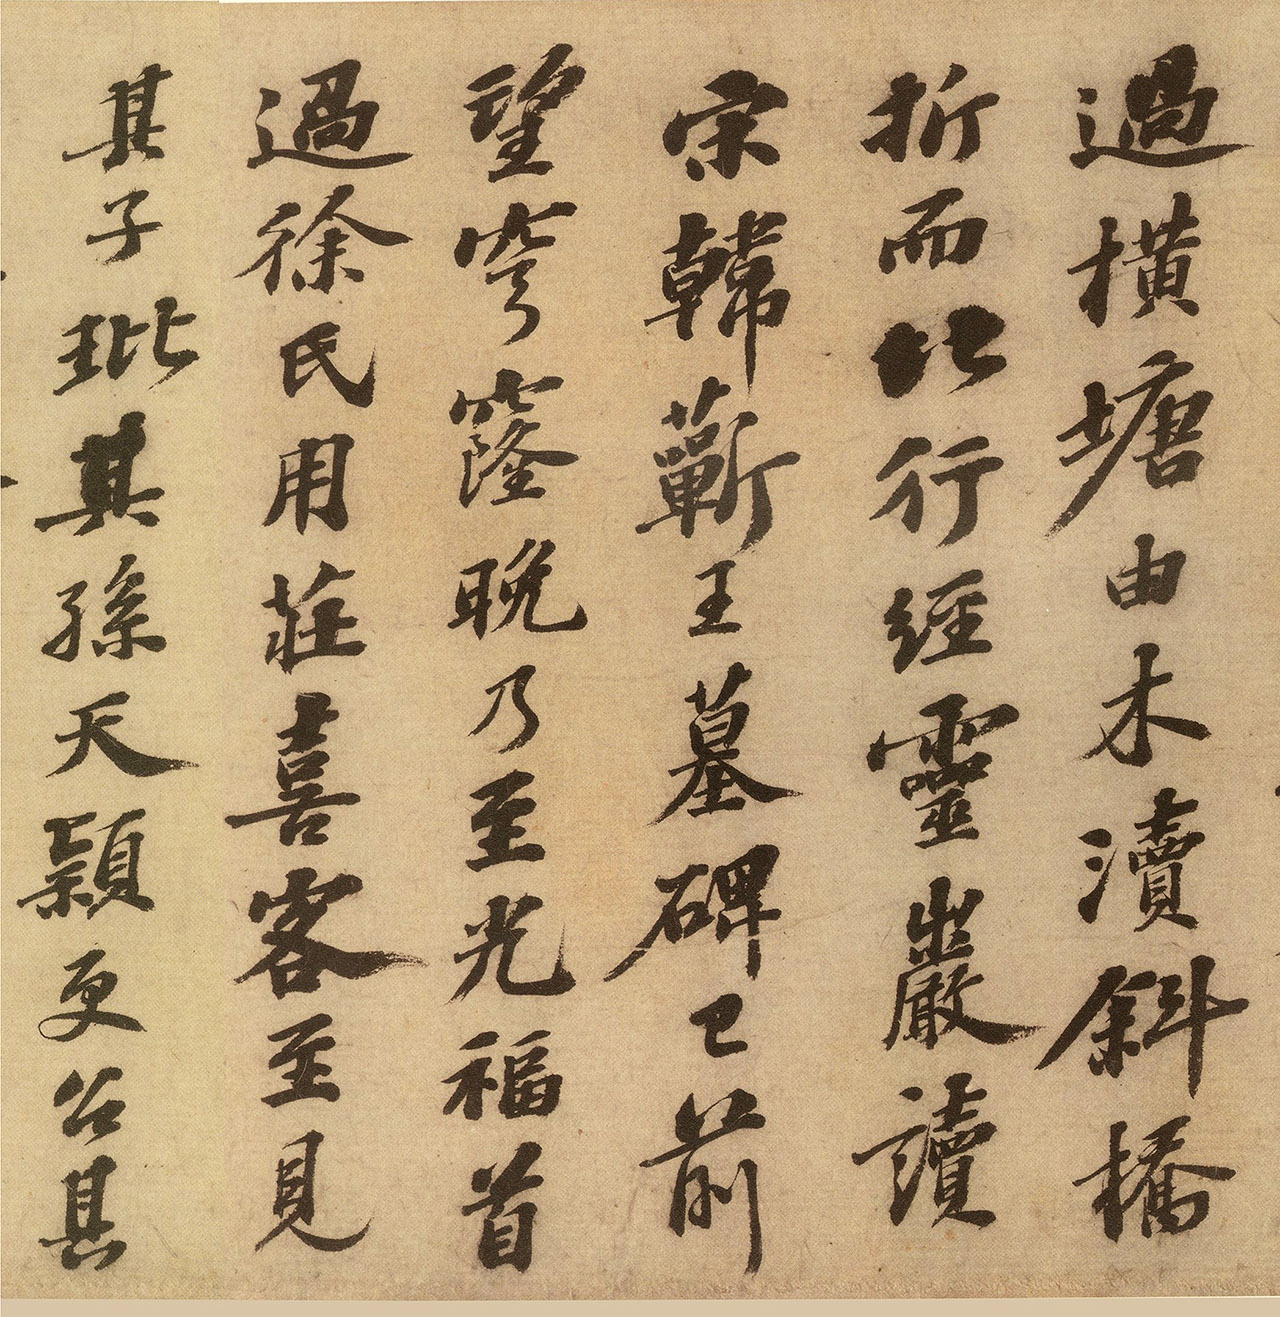 過橫塘由木瀆斜橋
折而北行經靈巖讀
宋韓蘄王墓碑已前
望穹窿晩乃至光福首
過徐氏用莊喜客至見
其子玭其孫天穎更召其